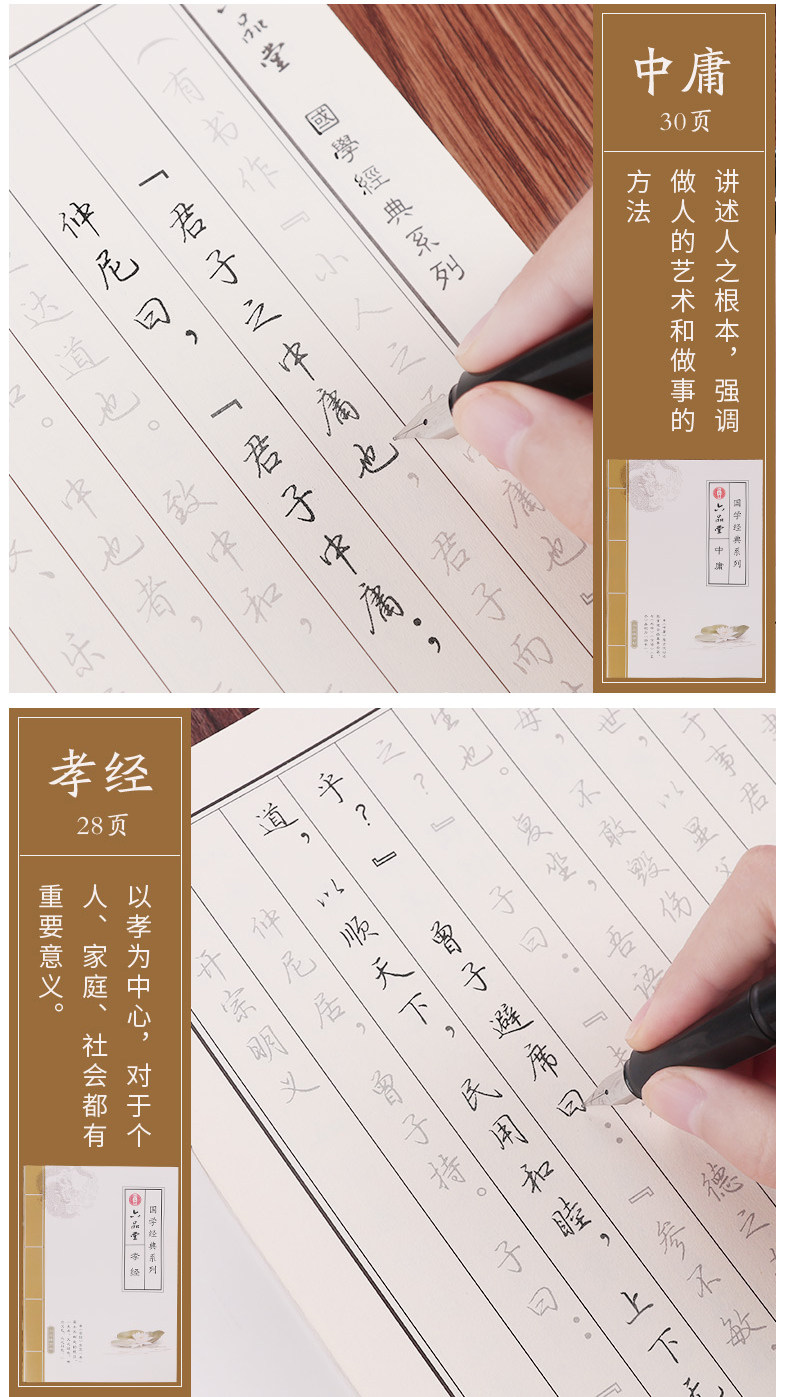 中庸
30页
讲述人之根本，强调
做人的艺术和做事的
方法
国学经典系列
六品堂
中庸
乐
中也者，
达道也。致中和，
仲尼曰，『君子中庸；
『君子之中庸也，君子而
（有书作『小人之
品堂 國學經典系列
孝经
28页
以孝为中心，对于个
人、家庭、社会都有
重要意义。
国学经典系列
六品堂
孝经
开宗明义
仲尼居，曾子持。子曰：
道，以顺天下，民用和睦，上下
乎？』曾子避席曰：『参不敏
之？』子曰：
德之
生也。复坐，吾语
母，不敢毁伤
世，以显父
于事君